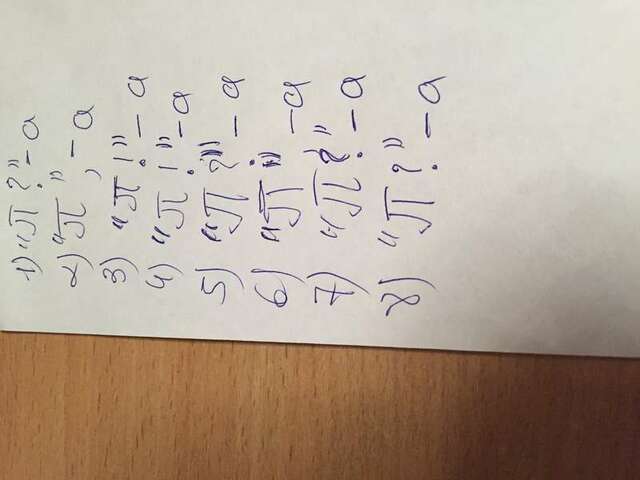 1) "П?" - а
2) "П", - а
3) "П!" - а
4) "П!" - а
5) "П?" - а
6) "П", - а
7) "П?" - а
8) "П?" - а